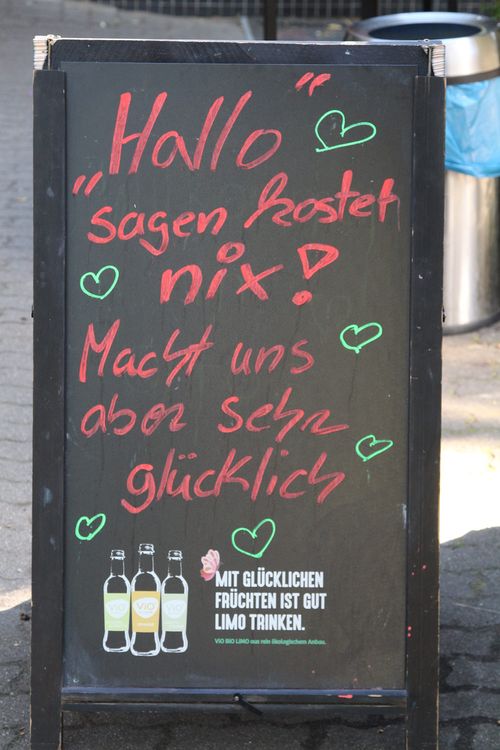 Hallo"
"sagen kostet
nix!
Macht uns
aber sehr
glücklich
ViO ViO ViO
MIT GLÜCKLICHEN
FRÜCHTEN IST GUT
LIMO TRINKEN.
ViO BiO LiMO aus rein ökologischem Anbau.